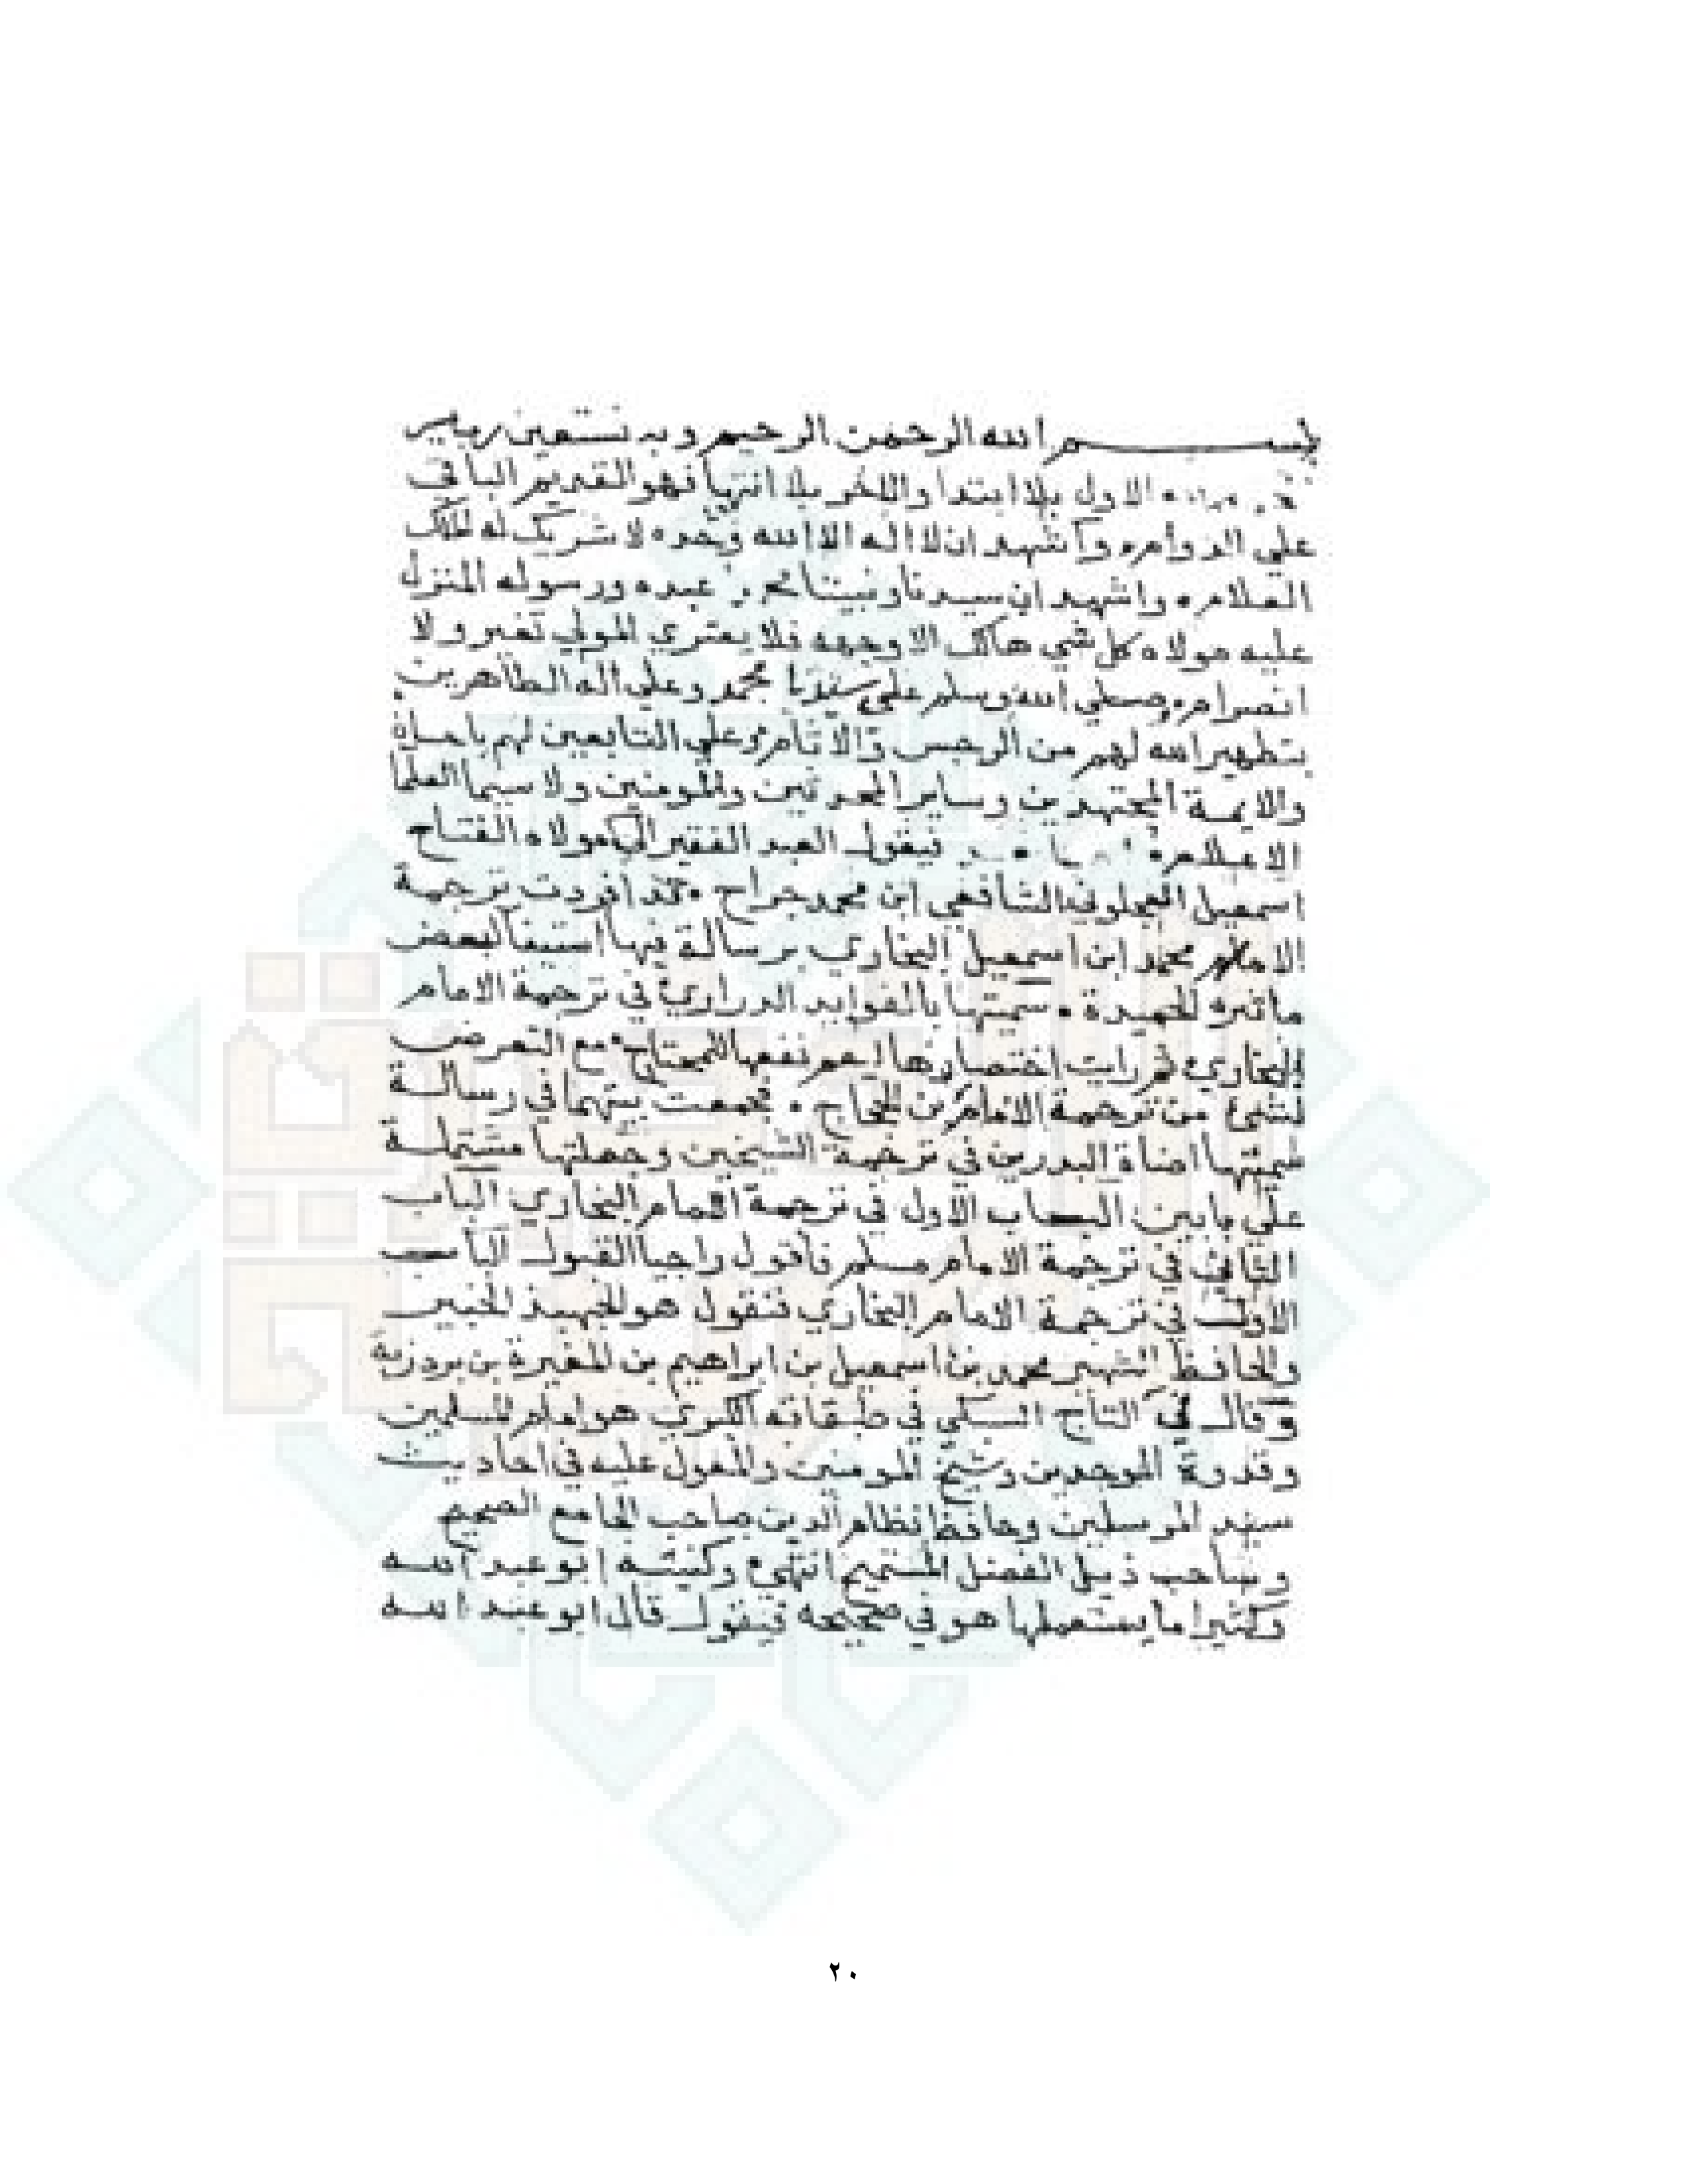 بسم الله الرحمن الرحيم وبه نستعين
الاول بلا ابتدا والاخر بلا انتها فهو القديم الباقي
علي الدوام وأشهد ان لا اله الا الله وحده لا شريك له الملك
العلام واشهد ان سيدنا ونبينا محمد عبده ورسوله المنزل
عليه مولاه كل شي هالك الا وجهه فلا يعتري المولي تغير ولا
انصرام وصلي الله وسلم علي سيدنا محمد وعلي اله الطاهرين
بتطهير الله لهم من الرجس والآثام وعلي التابعين لهم باحسان
والايمة المجتهدين وساير المحدثين والمومنين ولا سيما العلما
الاعلام فيقول العبد الفقير الي مولاه الفتاح
اسمعيل العجلوني الشافعي ابن محمد جراح قد أفردت ترجمة
الامام محمد ابن اسمعيل البخاري برسالة فيها استيفا لبعض
ماثره الحميدة سميتها بالفوايد الدراري في ترجمة الامام
البخاري ثم رايت اختصارها ليعم نفعها للمحتاج مع التعرض
لشيئ من ترجمة الامام بن الحجاج فجمعت بينهما في رسالة
سميتها اضاة البدرين في ترجمة الشيخين وجعلتها مشتملة
علي بابين الباب الاول في ترجمة الامام البخاري الباب
الثاني في ترجمة الامام مسلم فأقول راجيا القبول الباب
الاول في ترجمة الامام البخاري فنقول هو الجهبذ الخبير
والحافظ الشهير محمد بن اسمعيل بن ابراهيم بن المغيرة بن بردزبه
وقال في التاج السبكي في طبقاته الكبري هو امام المسلمين
وقدوة الموحدين وشيخ المومنين والمعول عليه في احاديث
سيد المرسلين وحافظ نظام الدين صاحب الجامع الصحيح
وصاحب ذيل الفضل المستميح انتهي وكنيته ابو عبد الله
وكثيرا ما يستعملها هو في صحيحه فيقول قال ابو عبد الله
٢٠